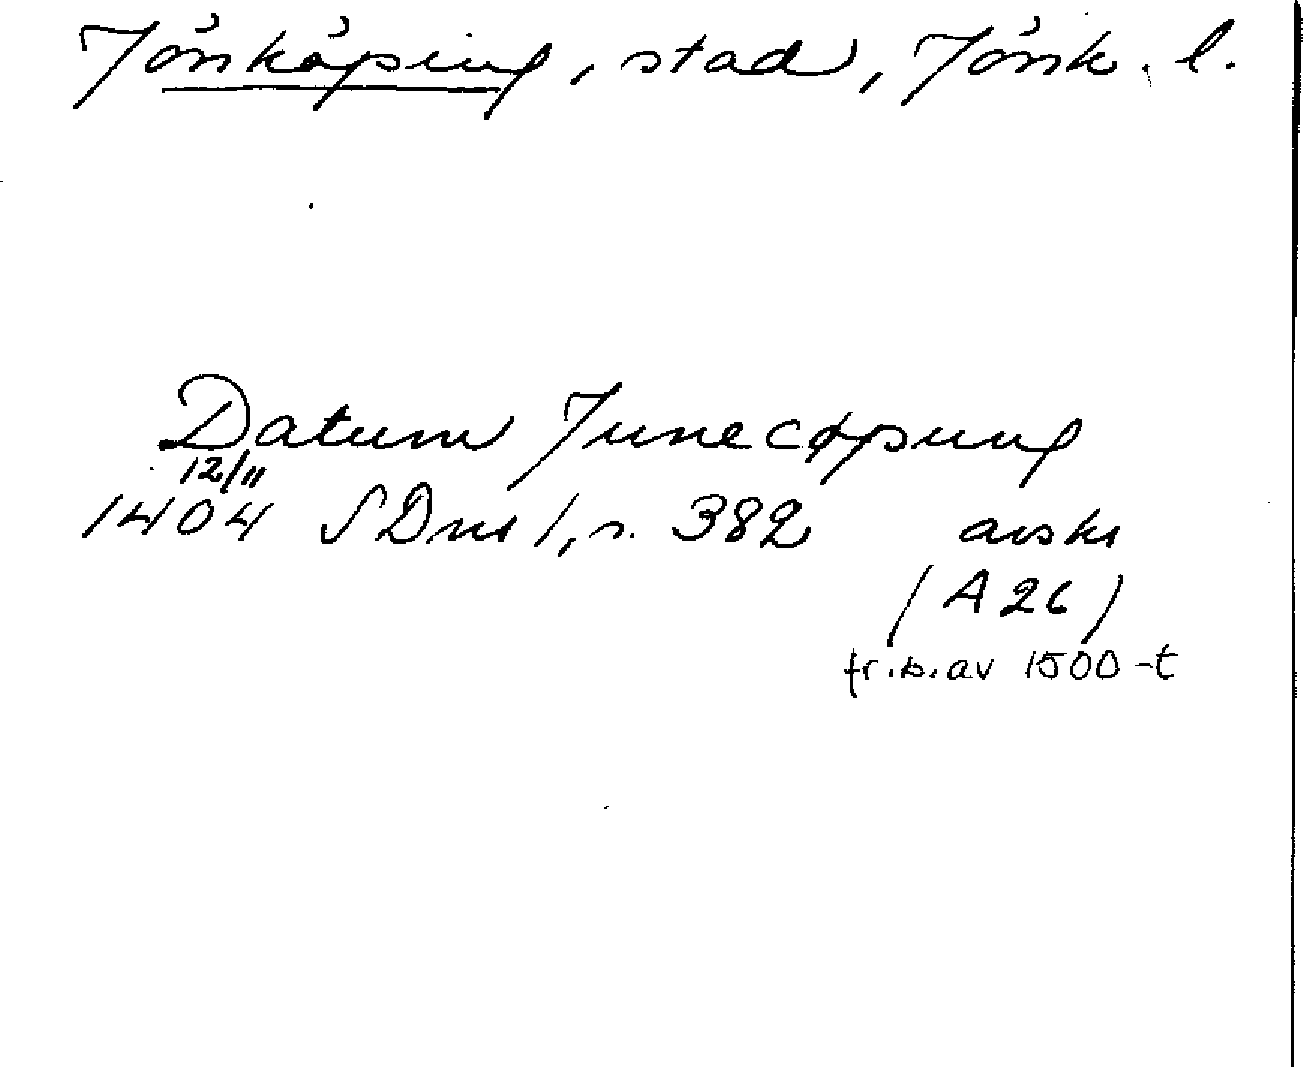 Jönköping, stad, Jönk. l.
Datum Junecøpung
12/11
1404 SDns 1, s. 382 avskr
(A 26)
fr. b. av 1500-t